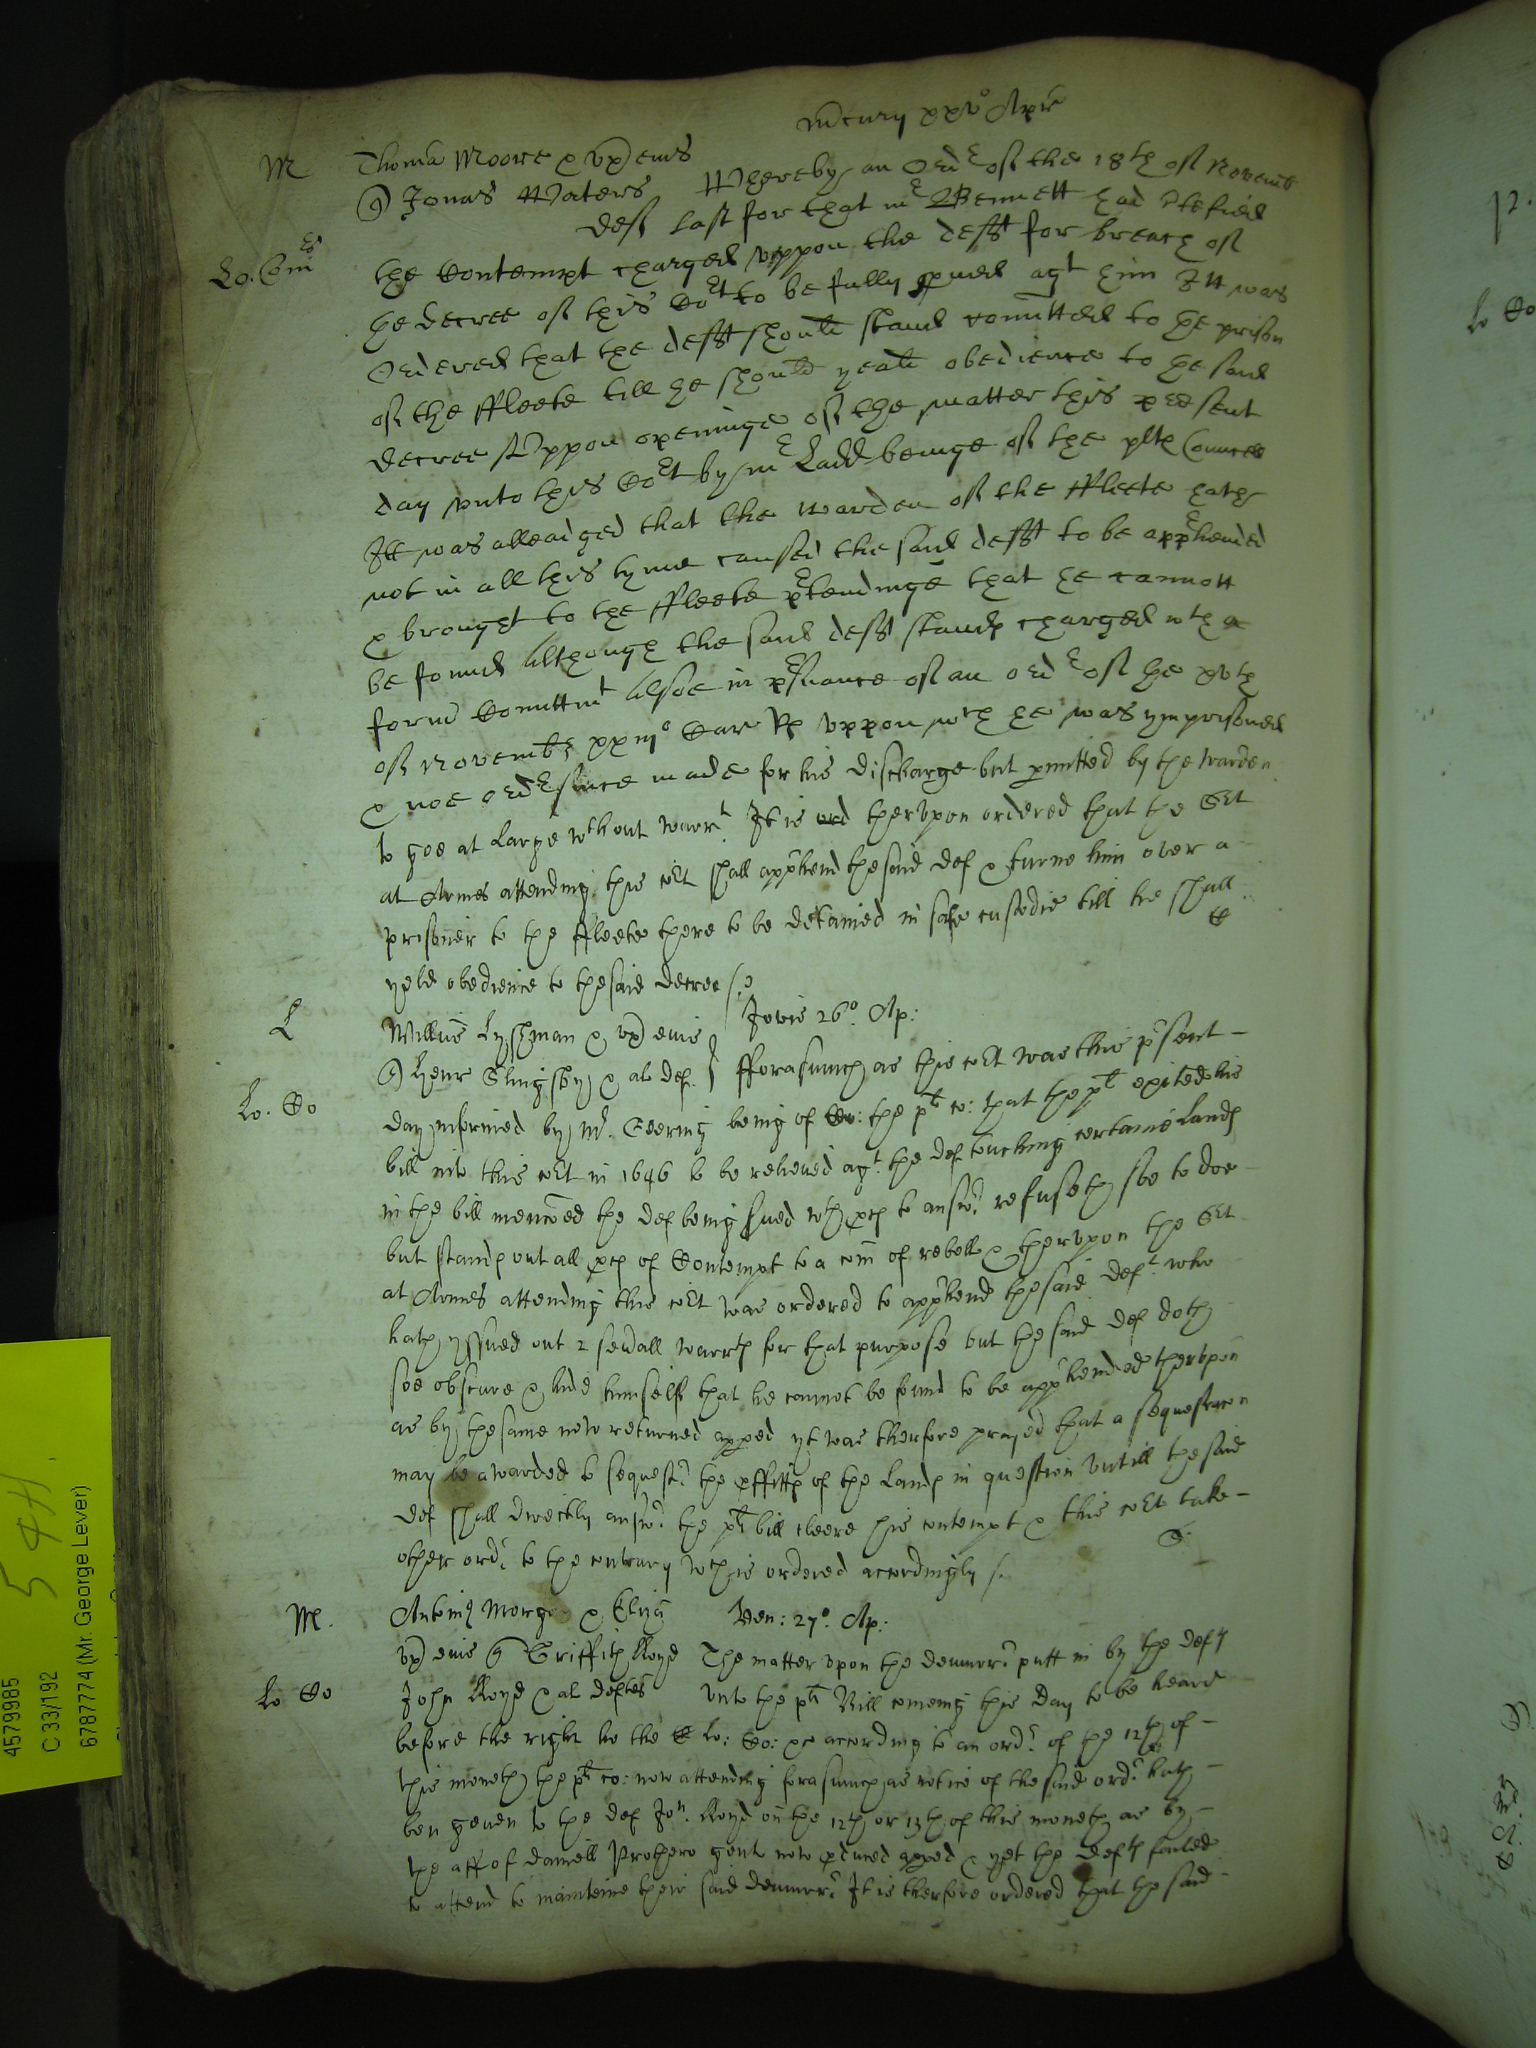 Mercurij xxv° Apr
M Thoma Moore & vx eius
Jonas Waters Whereby an Ord of the 18th of Novemb
def last for that mr Bennett had certefied
Lo. Com
the Contempt charged vppon the defft for breach of
the decree of this Cort to be fully proued agt him Itt was
Ordered that the defft should stand comitted to the prison
of the ffleete till he should yeald obedience to the said
decree Vppon openinge of the matter this present
day vnto this Cort by mr Ladd beinge of the plts Councell
Itt was alleadged that the warden of the ffleete hath
not in all this tyme caused the said defft to be apprhended
& brought to the ffleete prtendinge that he cannott
be found Although the said defft stands charged wth a
form Comittmt Alsoe in prsuance of an ordr of the xvth
of Novembr xxiij° Car Rs vppon wch he was ymprisoned
& noe ordr since made for his discharge but pmitted by the warden
to goe at large wthout warrt It is ord therevpon ordered that the Sert
at Armes attending this cort shall apprhend the said def & turne him over a
prisoner to the ffleete there to be detained in safe custodie till he shall
yeld obedience to the said decree
L Willus Lyshman & vx eius Jovis 26°. Ap:
Henr Slingsby & al def. fforasmuch as this cort was this prsent
Lo. Co day informed by Mr. Geering being of the plt co: that the plt exited his
bill into this cort in 1646 to be releived agt. the def touching certaine lands
in the bill menconed the def being sued wth pces to answr. refuseth soe to doe
but stands out all pces of Contempt to a com of rebell & therevpon the Sert
at Armes attending this cort was ordered to apprhend the said deft. who
hath yssued out 2 seuall warrts for that purpose but the said def doth
soe obscure & hide himselfe that he cannot be found to be apprhended thervpon
as by the same now returned appeed yt was therfore prayed that a sequestracon
may be awarded to sequestr. the pffitts of the lands in question vntill the said
def shall directly answr. the plt bill cleere his contempt & this cort take
other ordr. to the contrary wch is ordered accordingly
M. Antoni Morgan & Eliza Ven: 27°. Ap:
vx eius Griffith Lloyd The matter vpon the demurr. putt in by the defts
Lo Co John Lloyd & al deftes vnto the plts Bill comeing this day to be heard
before the right ho the Lo: Co: according to an ordr. of the 12th of
this moneth the plts co: now attending forasmuch as notice of the said ordr. hath
ben geuen to the def Jon. Lloyd on the 12th or 13th of this moneth as by
the aff of Daniell Prothero gent now pduced appeed & yet the defts failed
to attend to mainteine their said demurr. It is therfore ordered that the said
4579985
C 33/192
6787774 (Mr. George Lever)